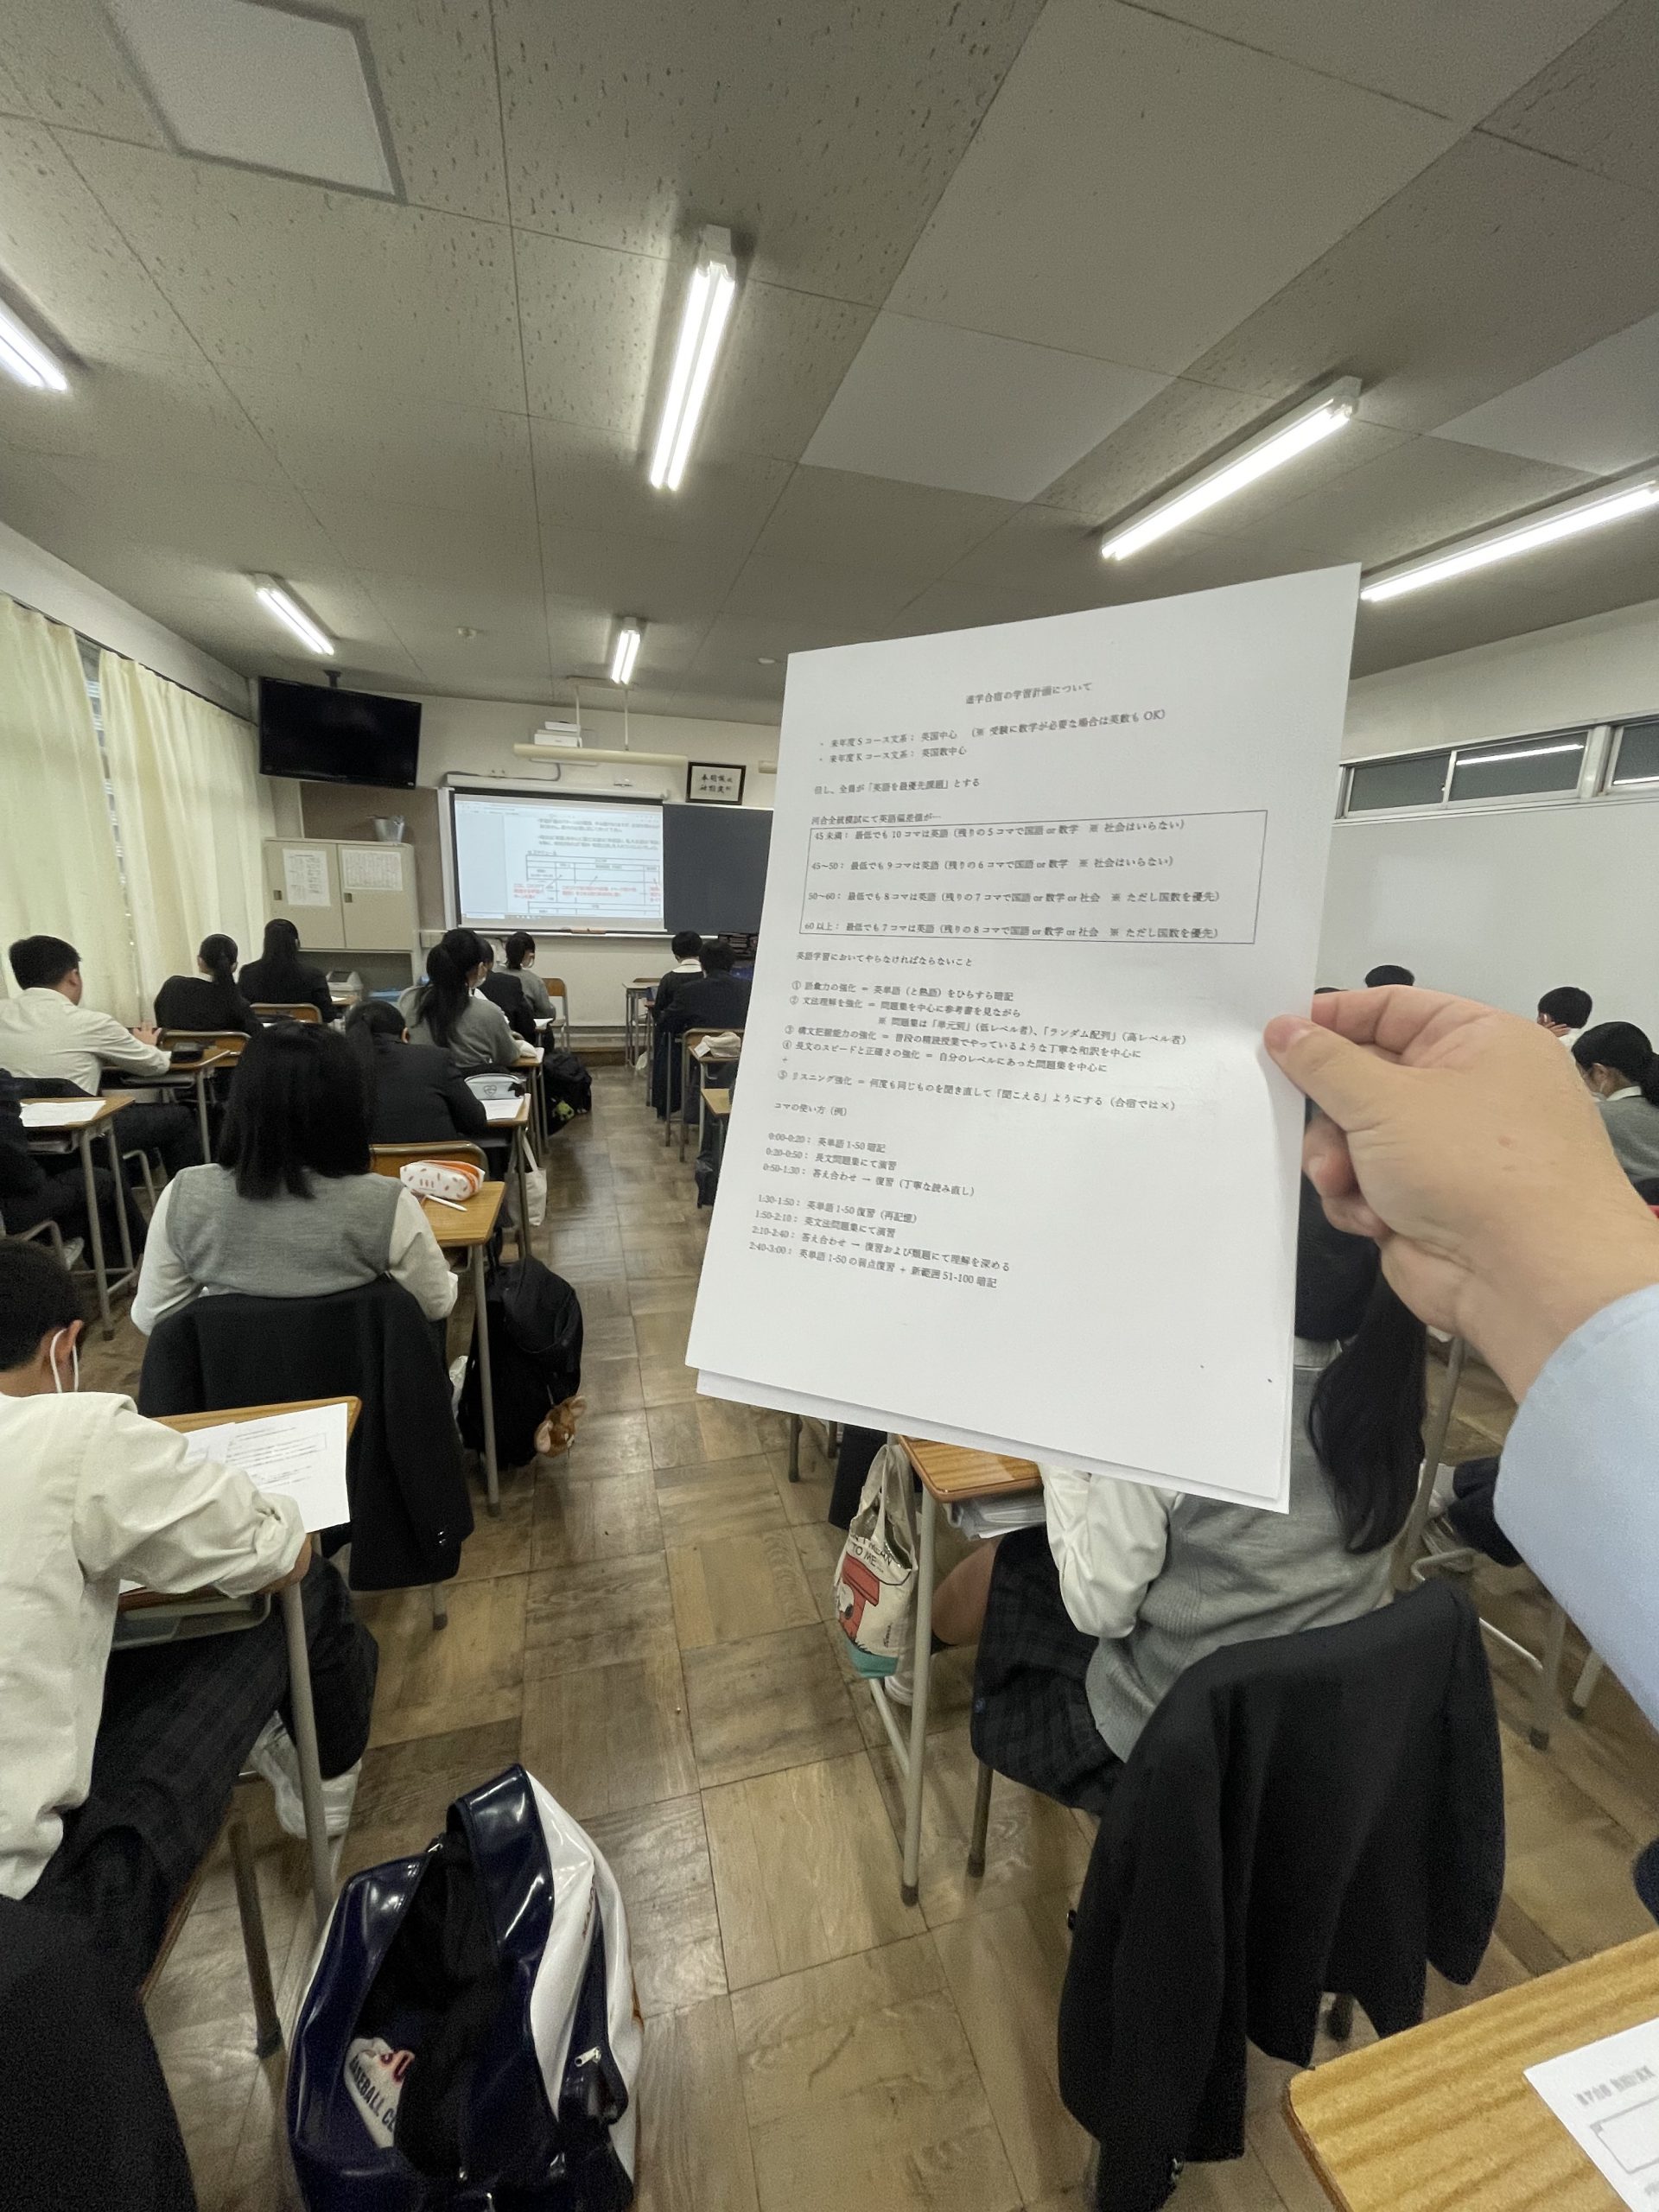 進学合宿の学習計画について
・ 来年度 S コース文系： 英国中心 （※ 受験に数学が必要な場合は英数も OK）
・ 来年度 K コース文系： 英国数中心
但し、全員が「英語を最優先課題」とする
河合全統模試にて英語偏差値が…
45 未満： 最低でも 10 コマは英語（残りの 5 コマで国語 or 数学 ※ 社会はいらない）
45～50： 最低でも 9 コマは英語（残りの 6 コマで国語 or 数学 ※ 社会はいらない）
50～60： 最低でも 8 コマは英語（残りの 7 コマで国語 or 数学 or 社会 ※ ただし国数を優先）
60 以上： 最低でも 7 コマは英語（残りの 8 コマで国語 or 数学 or 社会 ※ ただし国数を優先）
英語学習においてやらなければならないこと
① 語彙力の強化 ＝ 英単語（と熟語）をひらすら暗記
② 文法理解を強化 ＝ 問題集を中心に参考書を見ながら
※ 問題集は「単元別」（低レベル者）、「ランダム配列」（高レベル者）
③ 構文把握能力の強化 ＝ 普段の精読授業でやっているような丁寧な和訳を中心に
④ 長文のスピードと正確さの強化 ＝ 自分のレベルにあった問題集を中心に
+
⑤ リスニング強化 ＝ 何度も同じものを聞き直して「聞こえる」ようにする（合宿では×）
コマの使い方（例）
0:00-0:20： 英単語 1-50 暗記
0:20-0:50： 長文問題集にて演習
0:50-1:30： 答え合わせ → 復習（丁寧な読み直し）
1:30-1:50： 英単語 1-50 復習（再記憶）
1:50-2:10： 英文法問題集にて演習
2:10-2:40： 答え合わせ → 復習および類題にて理解を深める
2:40-3:00： 英単語 1-50 の弱点復習 + 新範囲 51-100 暗記
TO ME
BASEBALL